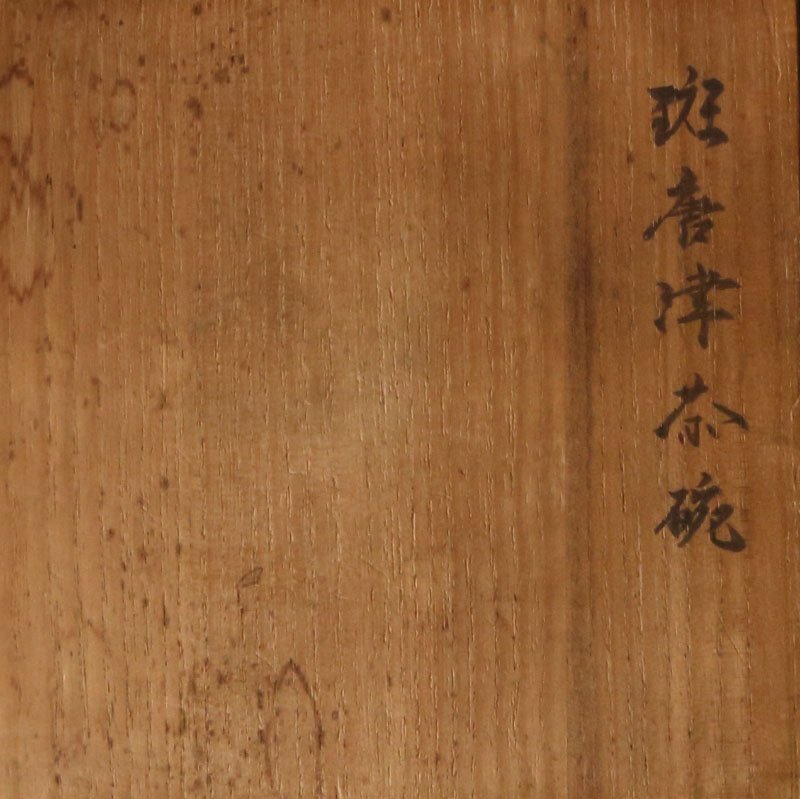 斑唐津茶碗